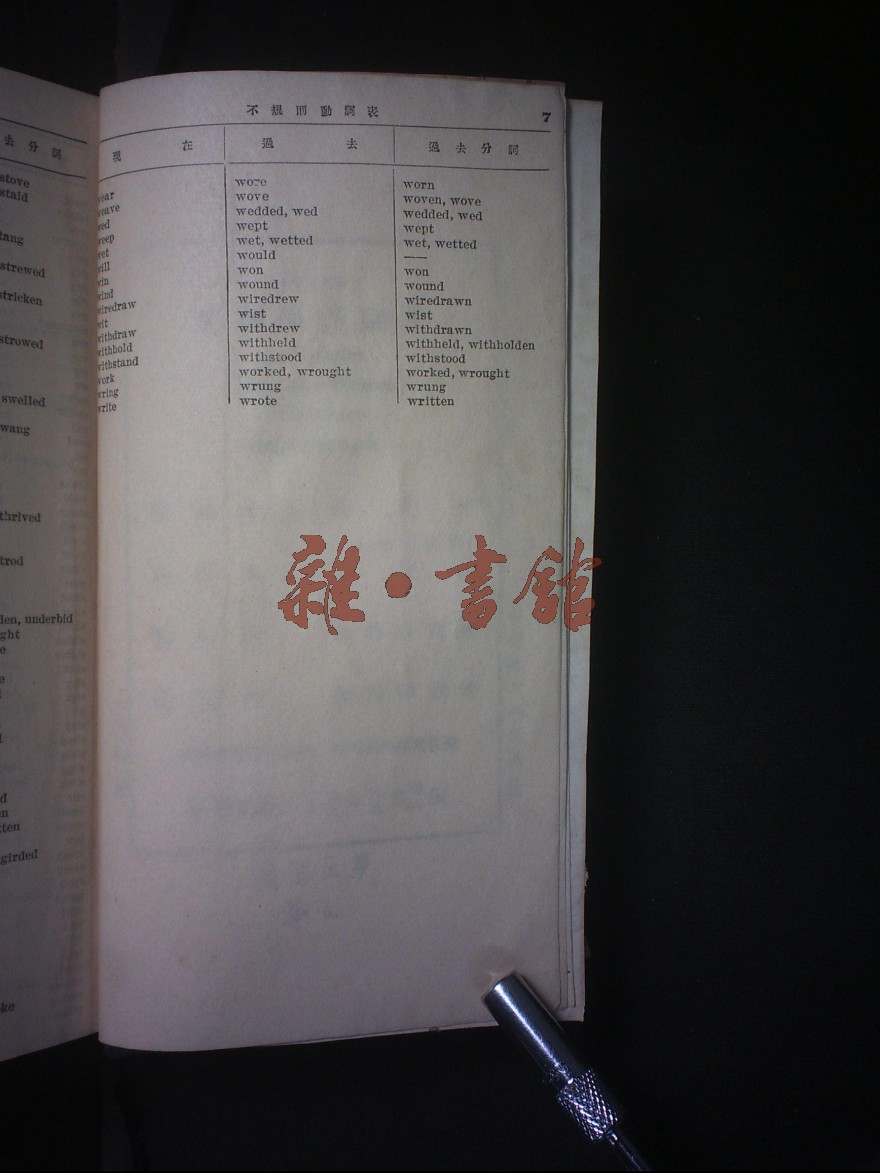 去分詞
stove
staid
strewed
stricken
strowed
swelled
thrived
underbid
girded
不規則動詞表 7
現在 過去 過去分詞
wear wore worn
weave wove woven, wove
wed wedded, wed wedded, wed
weep wept wept
wet wet, wetted wet, wetted
will would —
win won won
wind wound wound
wiredraw wiredrew wiredrawn
wit wist wist
withdraw withdrew withdrawn
withhold withheld withheld, withholden
withstand withstood withstood
work worked, wrought worked, wrought
wring wrung wrung
write wrote written
雜·書館